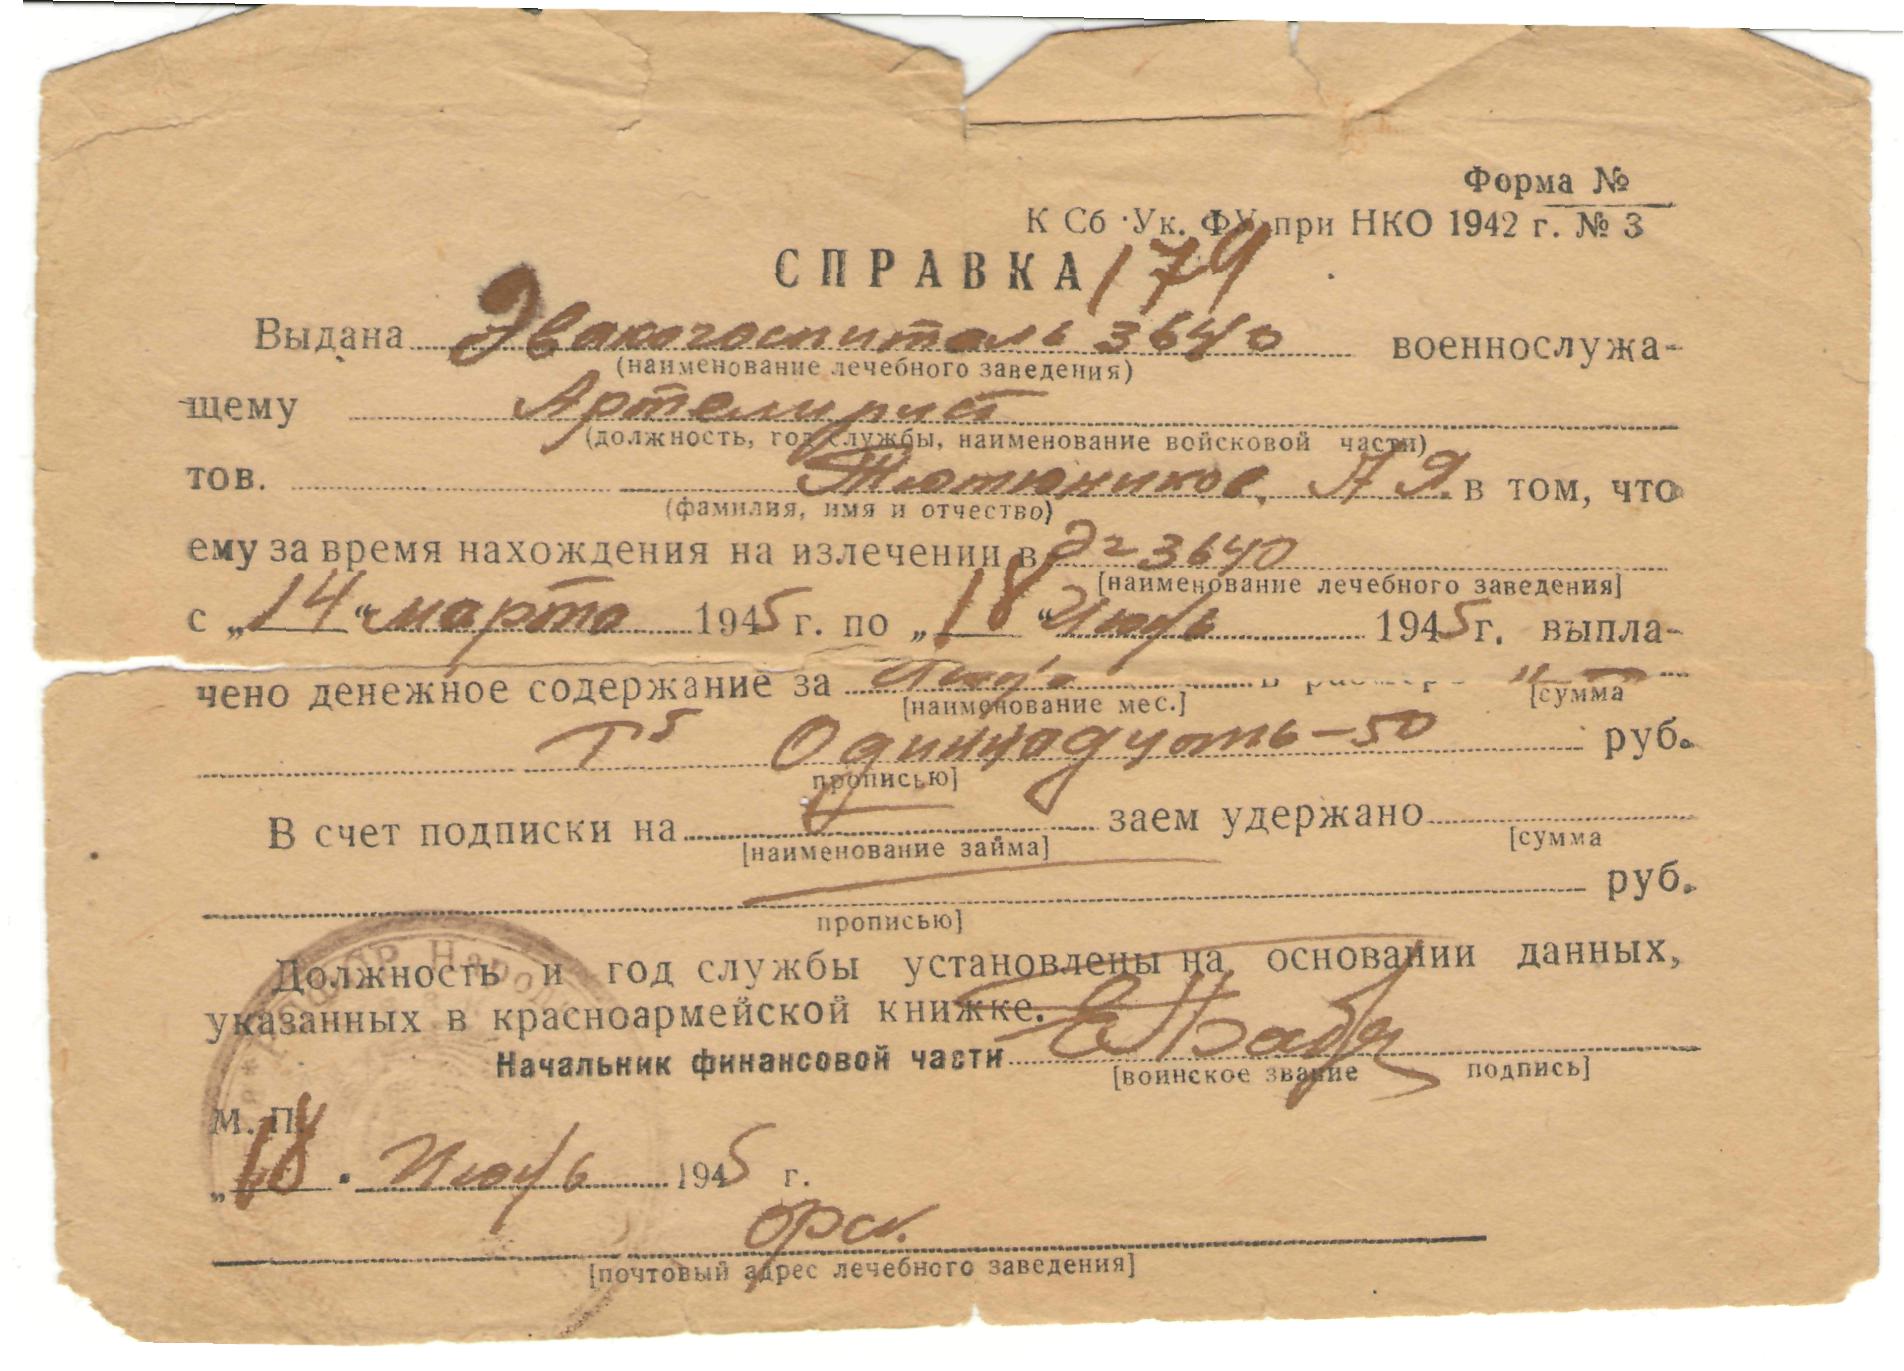 Форма №
К Сб. Ук. ФУ при НКО 1942 г. № 3
СПРАВКА 179
Выдана Эвакогоспиталь 3640 военнослужа-
(наименование лечебного заведения)
щему Артелирист
(должность, год службы, наименование войсковой части)
тов. Тютюников А Я. в том, что
(фамилия, имя и отчество)
ему за время нахождения на излечении в Эг 3640
[наименование лечебного заведения]
с „14“ марта 1945 г. по „18“ Июль 1945 г. выпла-
чено денежное содержание за в размере
[наименование мес.] [сумма
Одиннадцать-50 руб.
прописью]
В счет подписки на заем удержано
[наименование займа] [сумма
руб.
прописью]
Должность и год службы установлены на основании данных,
указанных в красноармейской книжке.
Начальник финансовой части
[воинское звание подпись]
М. П.
„18" Июль 1945 г.
Орск.
[почтовый адрес лечебного заведения]